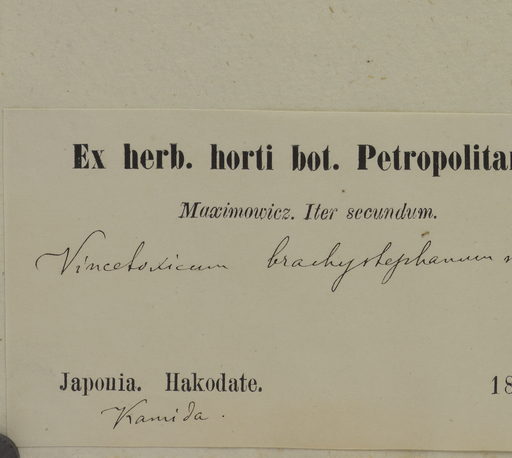 Ex herb. horti bot. Petropolita
Maximowicz. Iter secundum.
Vincetoxicum brachystephanum
Japonia. Hakodate. 18
Kamida.